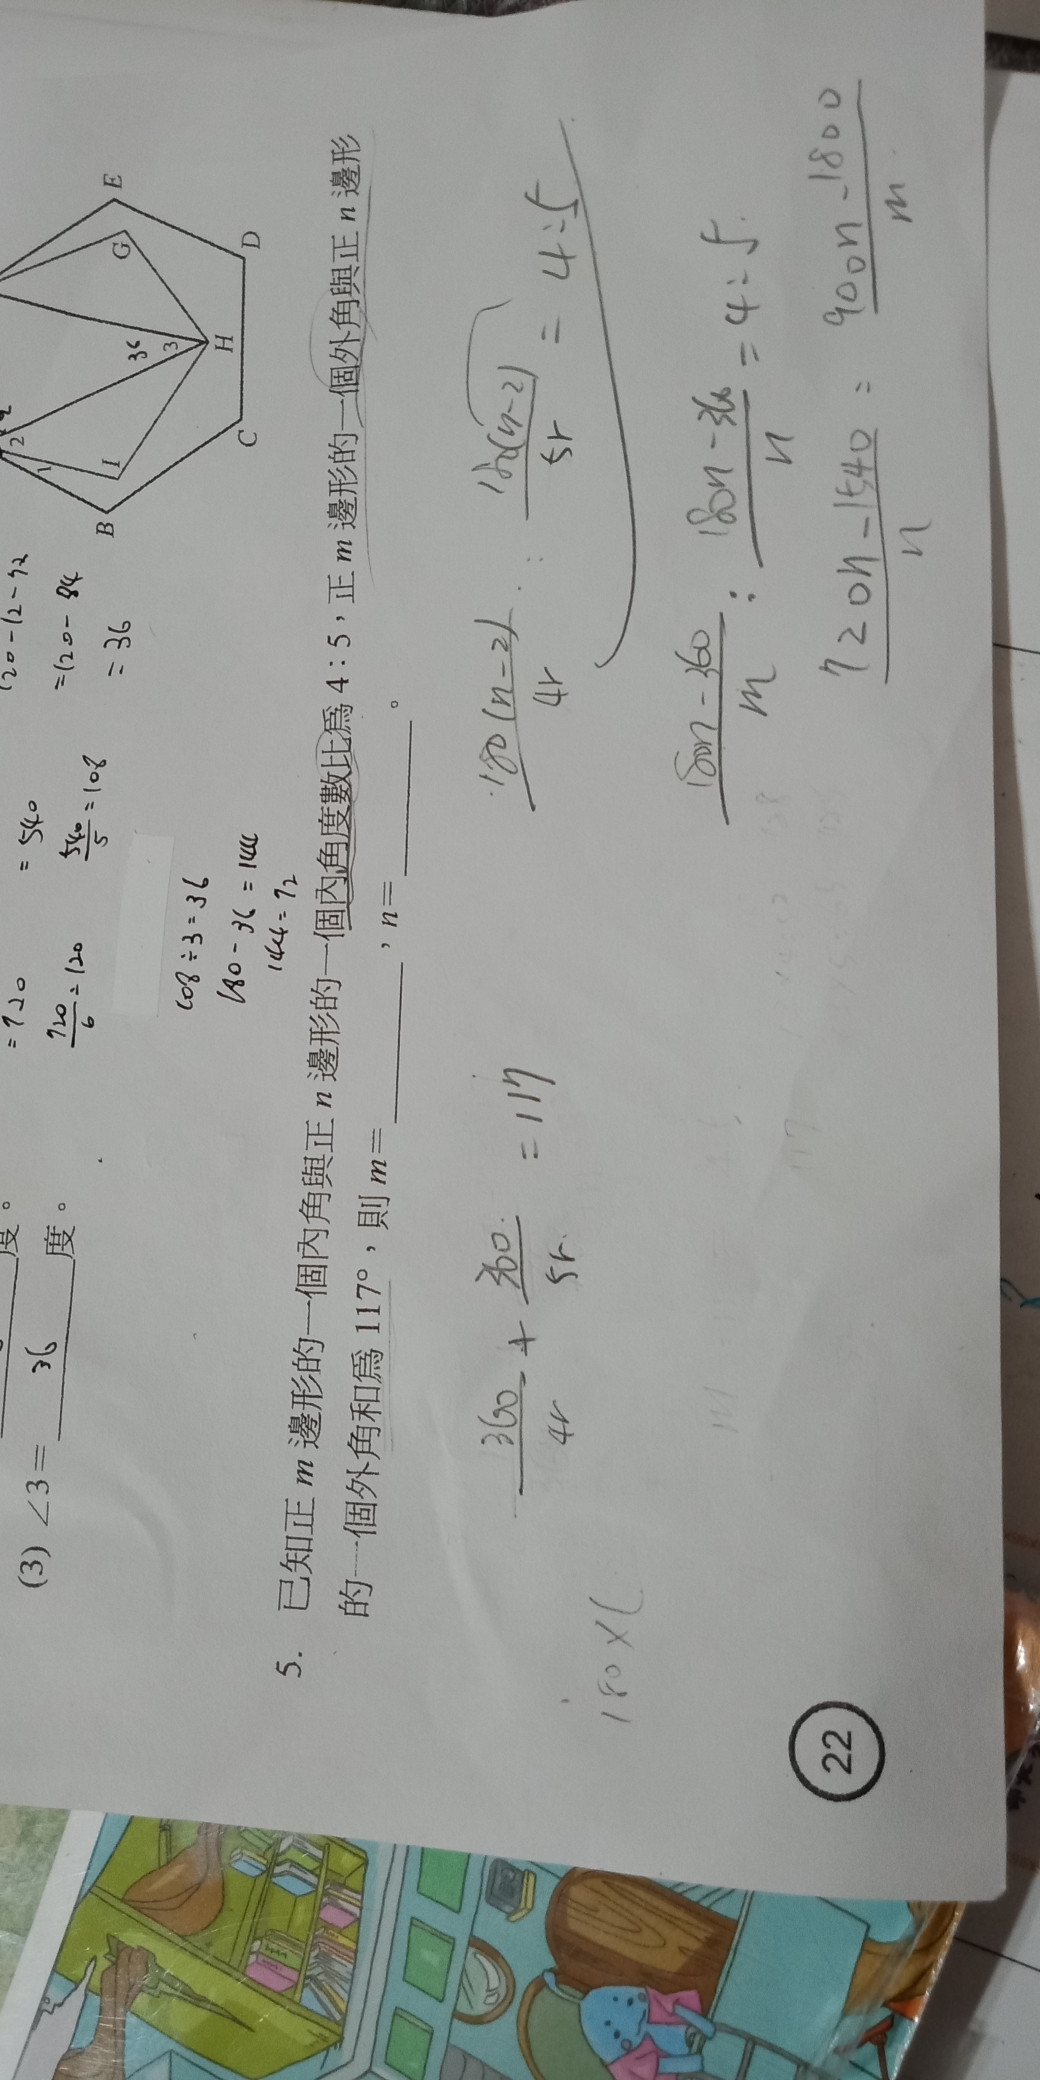 度。
(3) ∠3= 36 度。
=720
=540
120-12-72
720/6=120
540/5=108
=120-84
=36
108÷3=36
180-36=144
144=72
B
C
D
E
G
H
I
1
2
3
36
5. 已知正 m 邊形的一個內角與正 n 邊形的一個內角度數比為 4：5，正 m 邊形的一個外角與正 n 邊形
的一個外角和為 117°，則 m=________，n=________。
360/4r + 360/5r = 117
180(n-2)/4r : 180(n-2)/5r = 4:5
180×(
180n-360/m : 180n-360/n = 4:5
720n-1540/n = 900n-1800/m
22